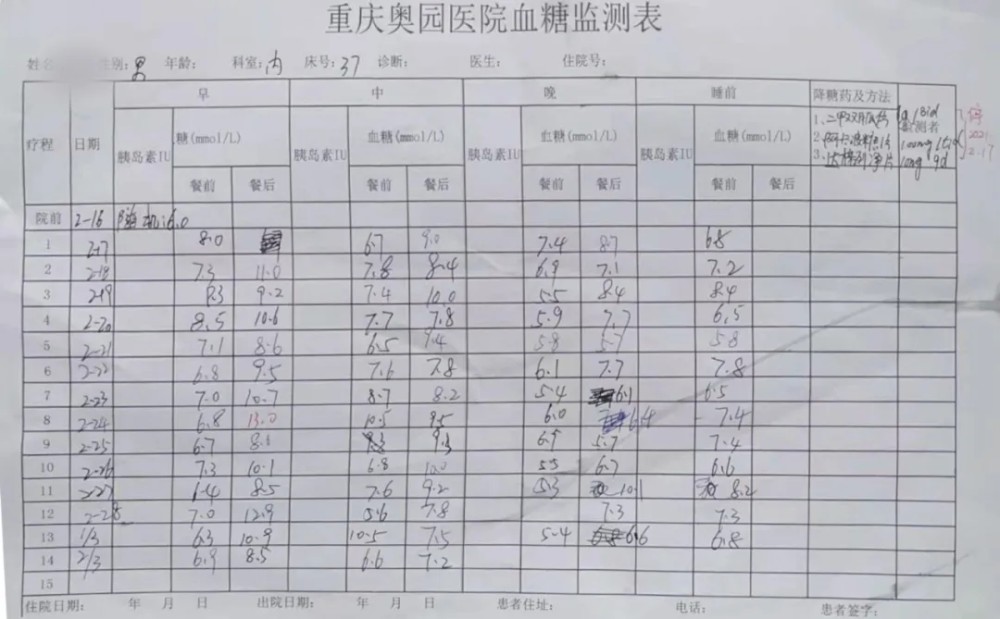 重庆奥园医院血糖监测表
性别：男 年龄： 科室：内 床号：37 诊断： 医生： 住院号：
疗程 日期 早 中 晚 睡前 降糖药及方法
胰岛素IU 糖(mmol/L) 胰岛素IU 血糖(mmol/L) 胰岛素IU 血糖(mmol/L) 胰岛素IU 血糖(mmol/L) 监测者
1、二甲双胍 1g 1Bid
2、阿卡波糖片 100mg 1tid
3、达格列净片 10mg qd
停
2021
2.17
餐前 餐后 餐前 餐后 餐前 餐后 餐前 餐后
院前 2-16 随机:6.0
1 2-17 8.0 6.7 9.0 7.4 8.7 6.8
2 2-18 7.3 11.0 7.8 8.4 6.9 7.1 7.2
3 2-19 8.3 9.2 7.4 10.0 5.5 8.4 8.4
4 2-20 8.5 10.6 7.7 7.8 5.9 7.7 6.5
5 2-21 7.1 8.6 6.5 9.4 5.8 5.7 5.8
6 2-22 6.8 9.5 7.6 7.8 6.1 7.7 7.8
7 2-23 7.0 10.7 8.7 8.2 5.4 6.1 6.5
8 2-24 6.8 13.0 10.5 9.5 6.0 6.4 7.4
9 2-25 6.7 8.1 8.3 9.3 6.9 5.7 7.4
10 2-26 7.3 10.1 6.8 10.0 5.5 6.7 6.6
11 2-27 6.4 8.5 7.6 9.2 5.3 10.1 8.2
12 2-28 7.0 12.9 5.6 7.8 7.3 7.3
13 1/3 6.3 10.9 10.5 7.5 5.4 6.6 6.8
14 2/3 6.9 8.5 6.6 7.2
15
住院日期： 年 月 日 出院日期： 年 月 日 患者住址： 电话： 患者签字：